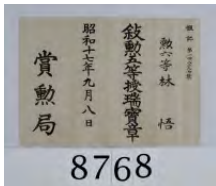 勲六等 林 悟
敍勲五等授瑞寶章
昭和十七年九月八日
賞勲局
8768